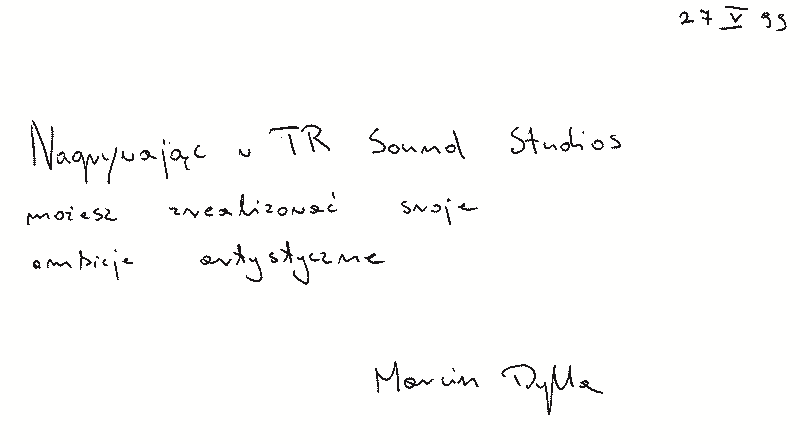 27 V 99
Nagrywając w TR Sound Studios
możesz zrealizować swoje
ambicje artystyczne
Marcin Dylla